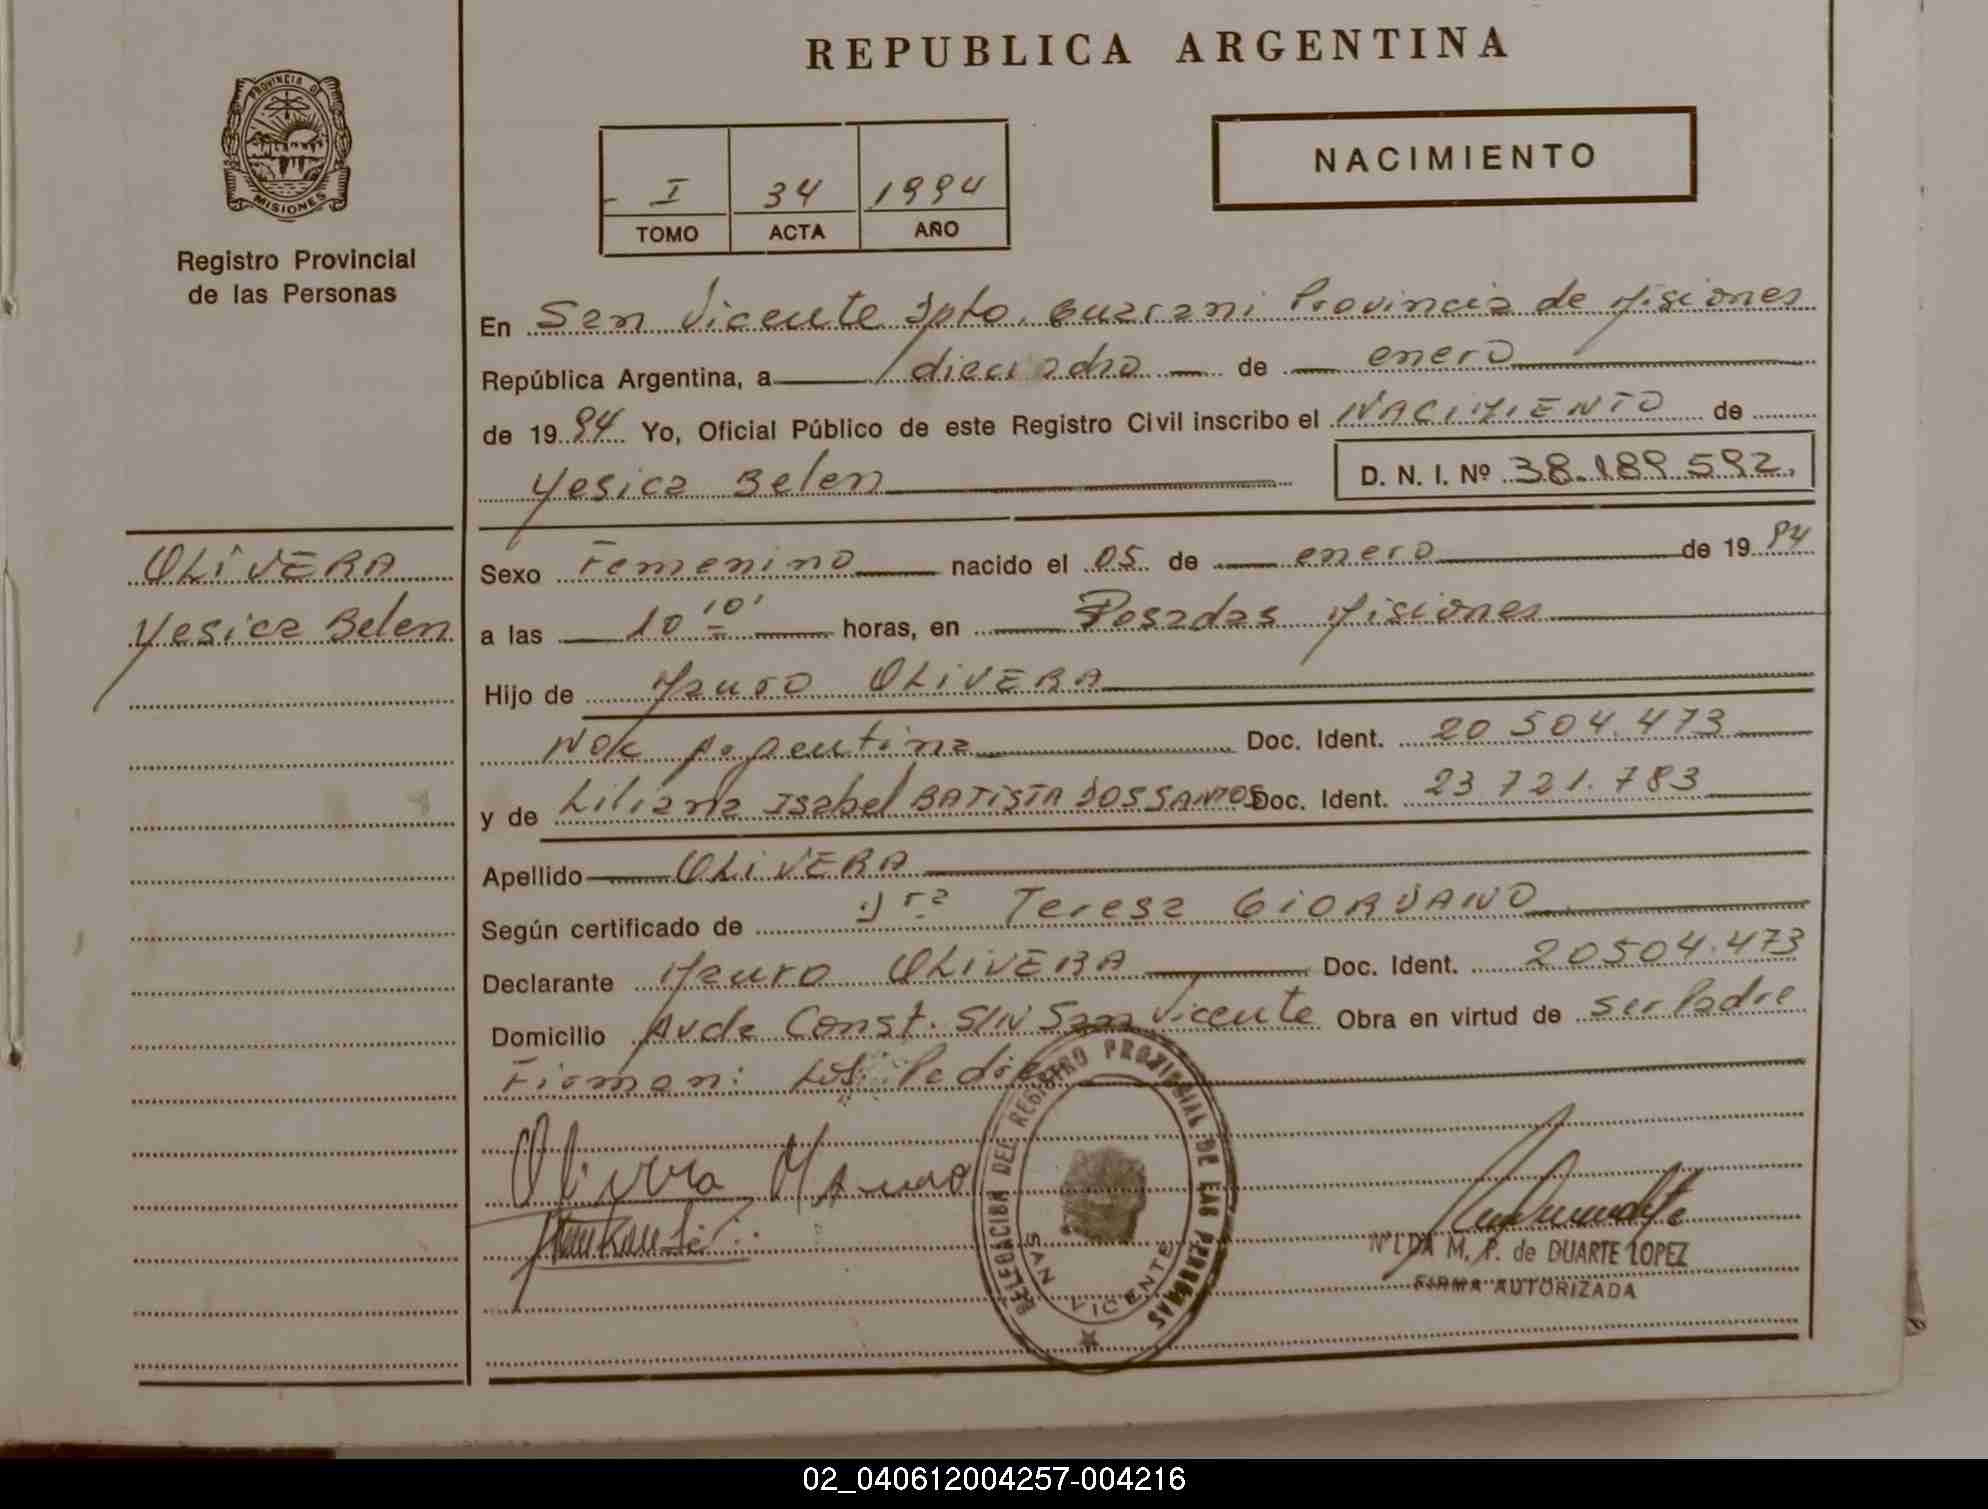 REPUBLICA ARGENTINA
PROVINCIA DE
MISIONES
Registro Provincial
de las Personas
NACIMIENTO
I 34 1994
TOMO ACTA AÑO
En San Vicente Dpto. Guarani Provincia de Misiones
República Argentina, a dieciocho de enero
de 1994 Yo, Oficial Público de este Registro Civil inscribo el NACIMIENTO de
Yesica Belen D. N. I. Nº 38.189.592.
OLIVERA
Yesica Belen
Sexo Femenino nacido el 05 de enero de 1994
a las 10 10' horas, en Posadas Misiones
Hijo de Mauro OLIVERA
Nac Argentina Doc. Ident. 20 504.473
y de Liliana Isabel BATISTA DOS SANTOS Doc. Ident. 23 721.783
Apellido OLIVERA
Según certificado de Dra Teresa GIORDANO
Declarante Mauro OLIVERA Doc. Ident. 20504.473
Domicilio Avda Const. S/N San Vicente Obra en virtud de ser Padre
Firman: Padre
Olivera Mauro
DELEGACION DEL REGISTRO PROVINCIAL DE LAS PERSONAS
SAN VICENTE
M. P. de DUARTE LOPEZ
FIRMA AUTORIZADA
02_040612004257-004216